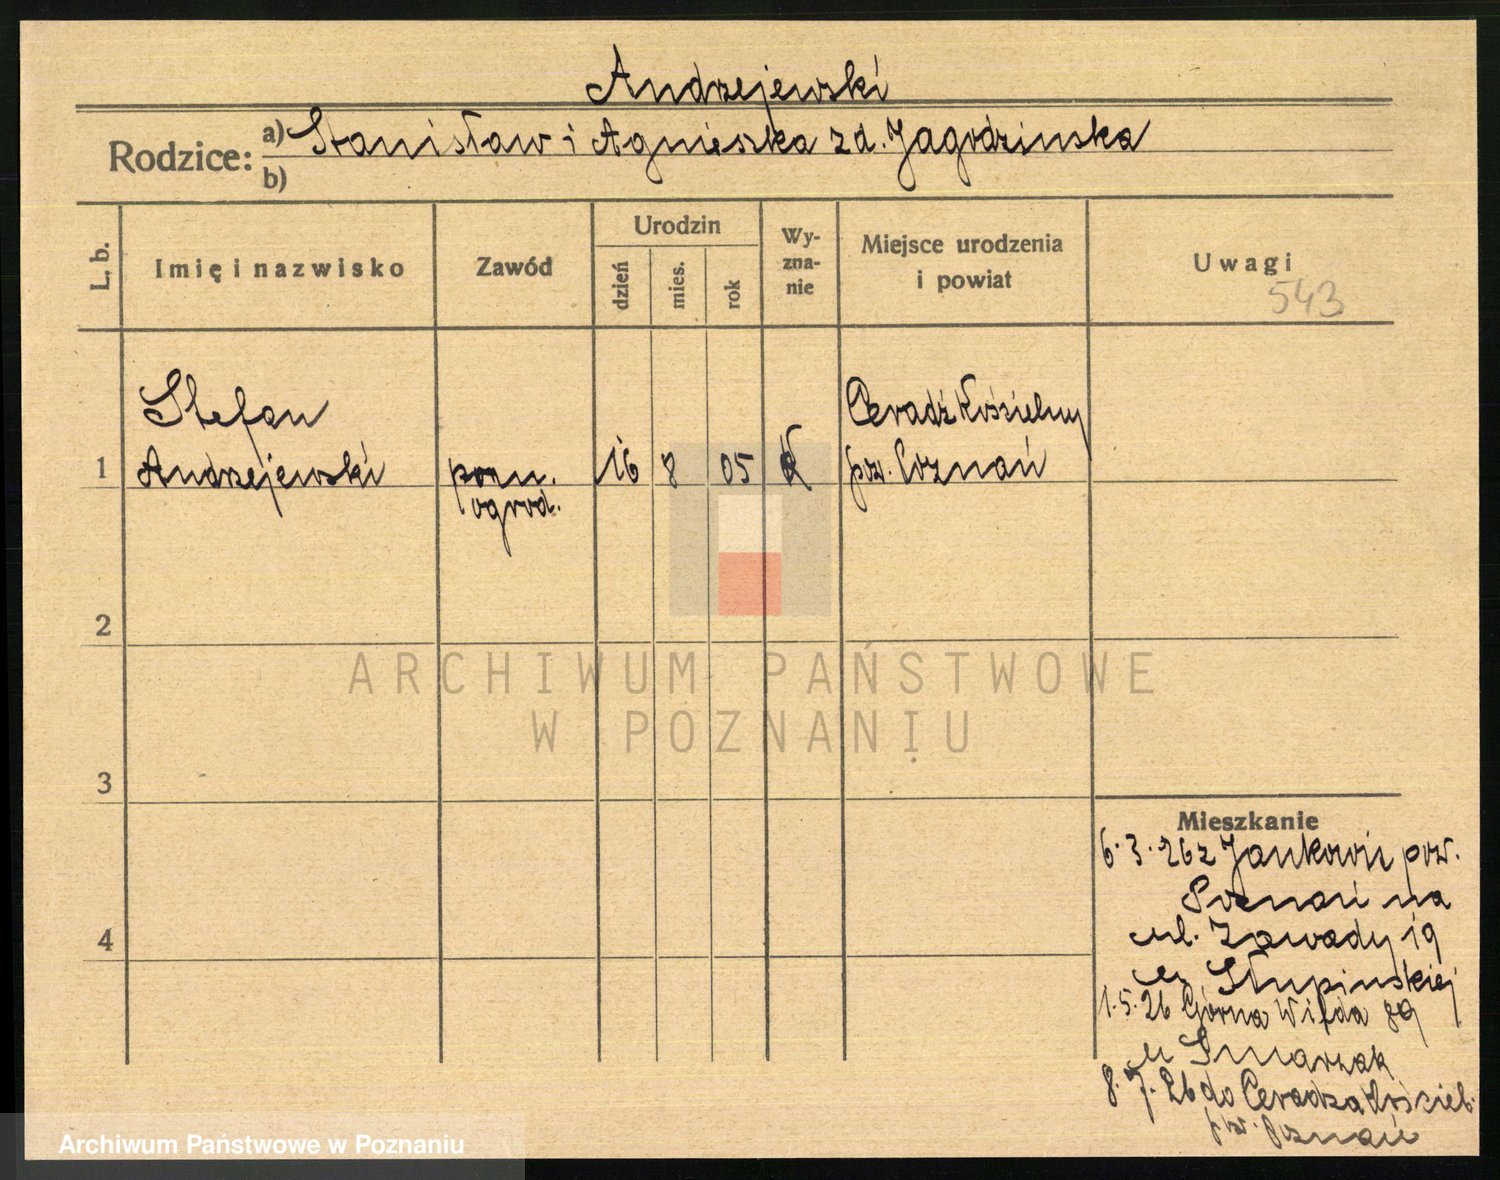 Andrzejewski
Rodzice: a) Stanisław i Agnieszka z d. Jagodzinska
b)
L. b.
Imię i nazwisko
Zawód
Urodzin
dzień
mies.
rok
Wy-
zna-
nie
Miejsce urodzenia
i powiat
Uwagi
543
Stefan
1 Andrzejewski
pom.
ogrod.
16 8 05
k
Ceradź Kościelny
pow. Poznań
2
3
4
ARCHIWUM PAŃSTWOWE
W POZNANIU
Mieszkanie
6.3.26 z Jankowic pow.
Poznań na
ul. Zawady 19
u Słupinskiej
1.5.26 Górna Wilda 89
u Smarzak
8.7.26 do Ceradza Kościel.
pow. Poznań
Archiwum Państwowe w Poznaniu